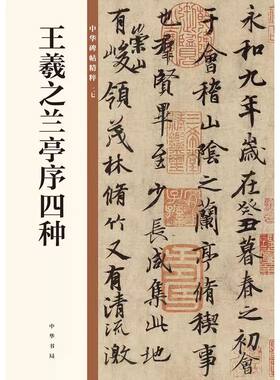 中华碑帖精粹
王羲之兰亭序四种
中华书局
永和九年歲在癸丑暮春之初會
于會稽山陰之蘭亭脩稧事
也群賢畢至少長咸集此地
有崇山峻領茂林脩竹又有清流激